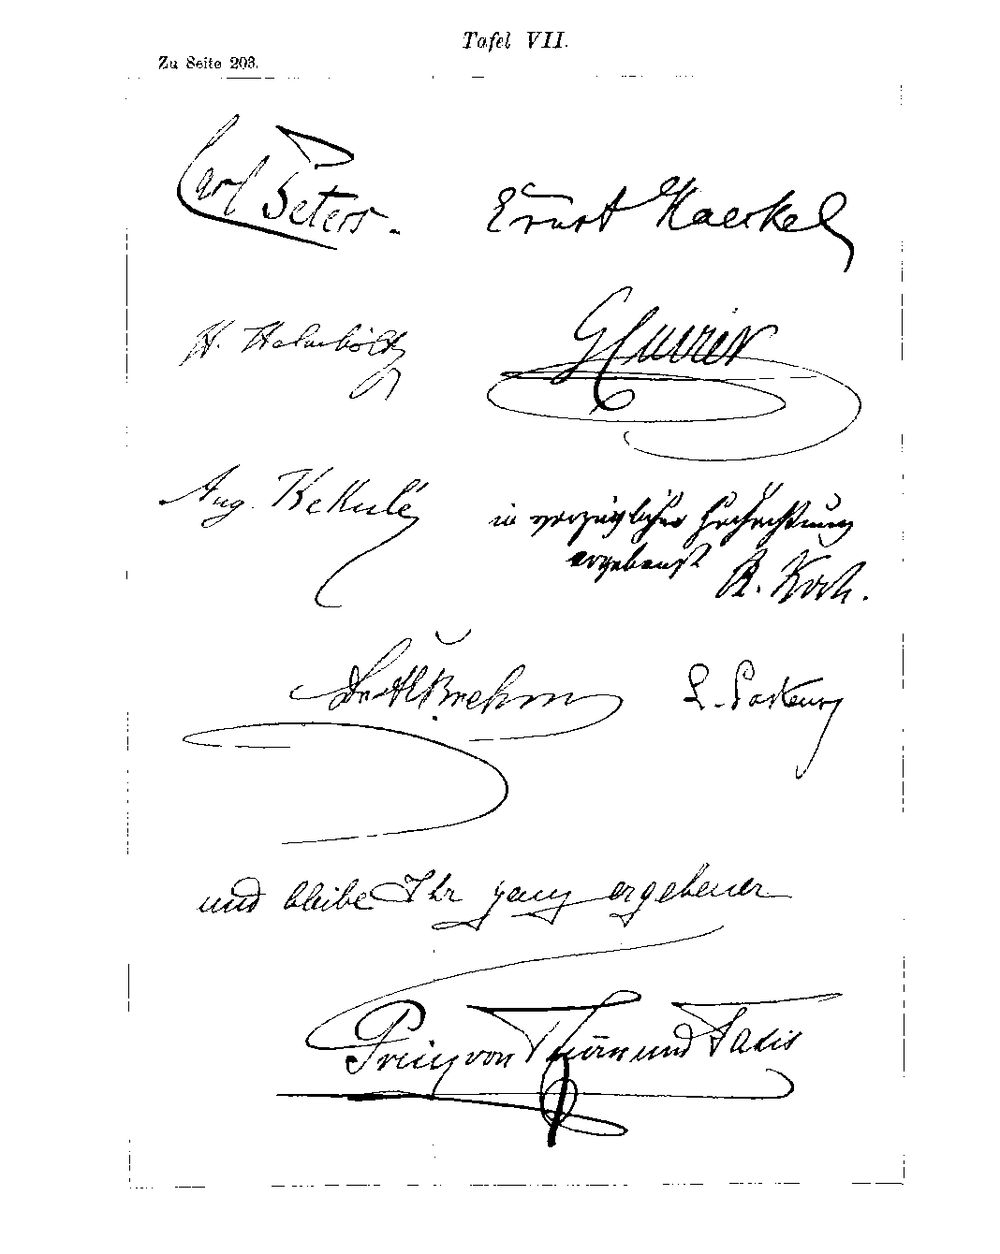 Tafel VII.
Zu Seite 203.
Carl Peters.
Ernst Haeckel
H. Helmholtz
G Cuvier
Aug. Kekulé
in vorzüglicher Hochachtung
ergebenst R. Koch.
Dr. A E Brehm
L. Pasteur
und bleibe Ihr ganz ergebener
Prinz von Thurn und Taxis